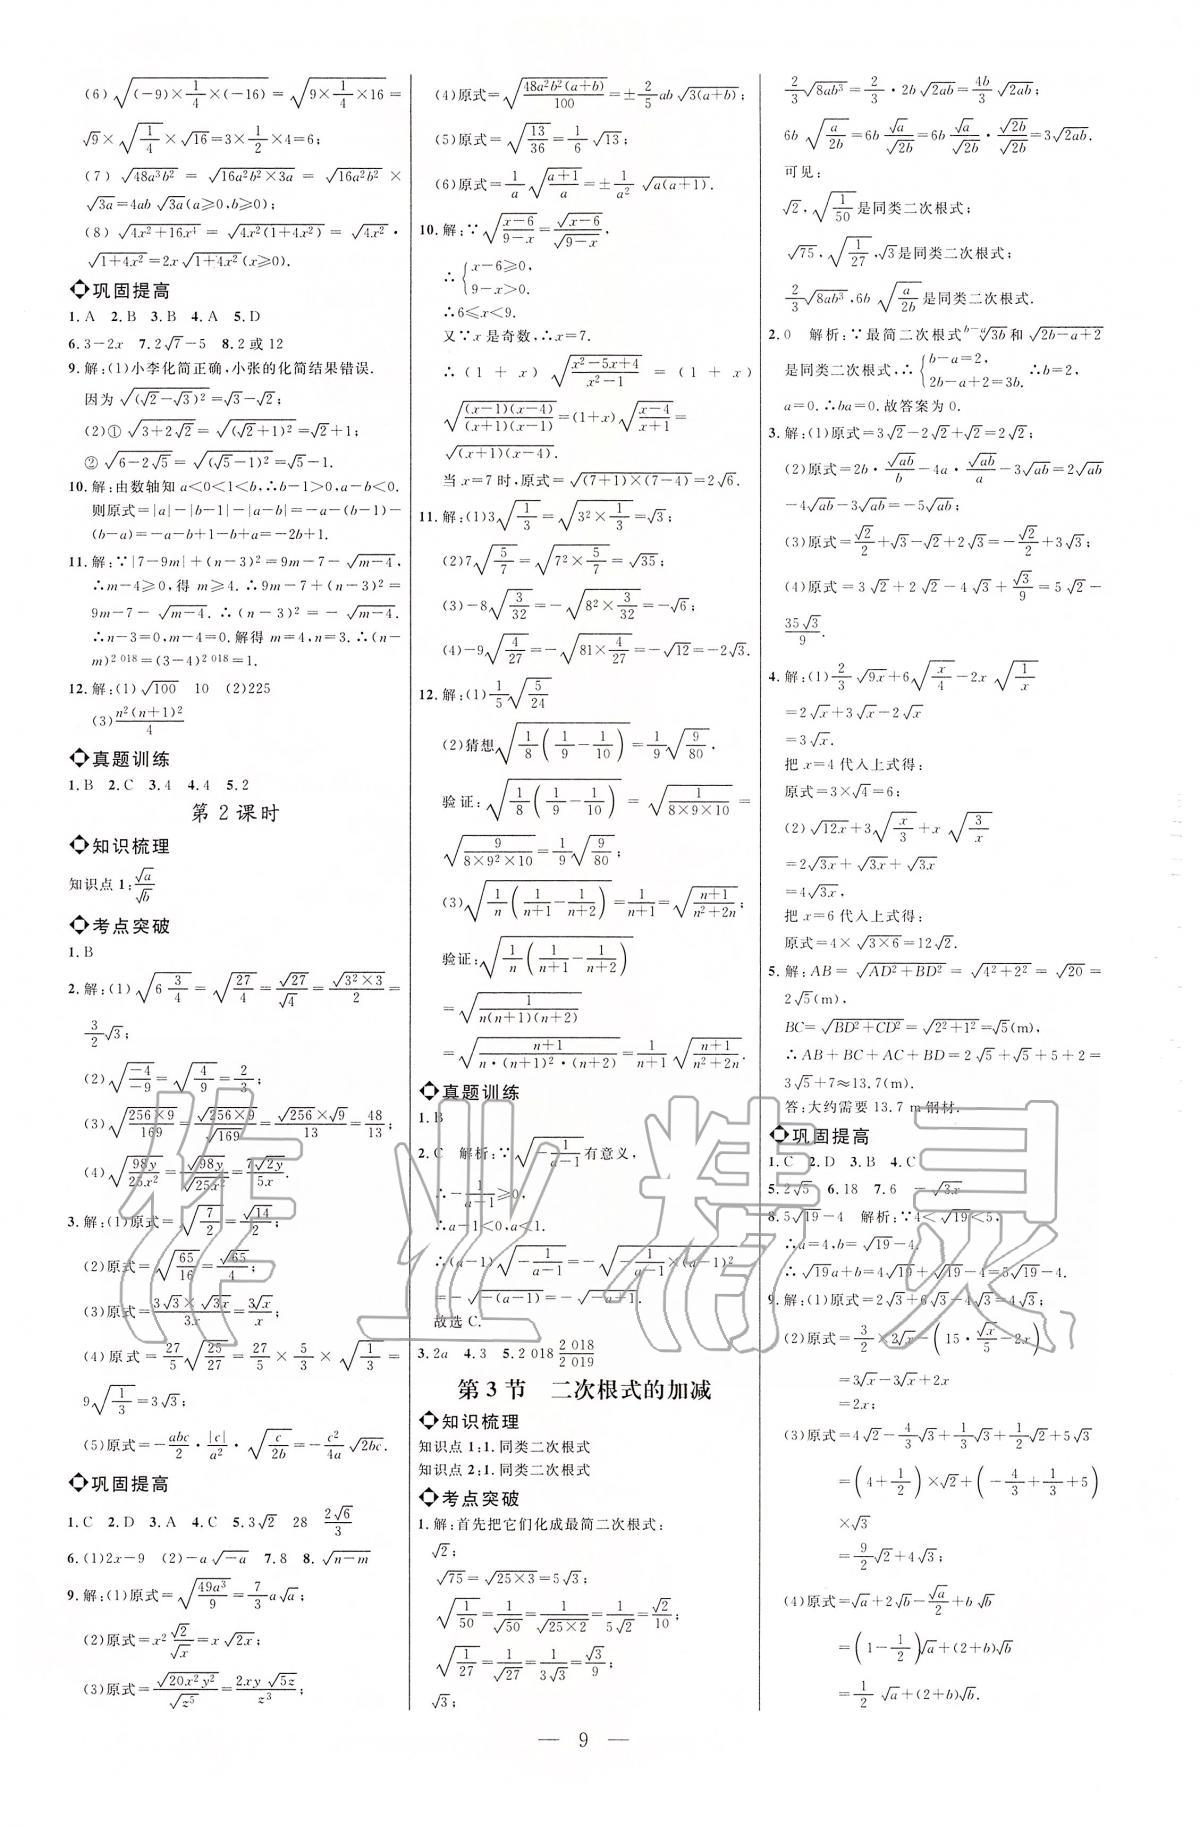 (6)√((-9)×1/4×(-16))=√(9×1/4×16)=
√9×√(1/4)×√16=3×1/2×4=6;
(7)√(48a³b²)=√(16a²b²×3a)=√(16a²b²)×
√(3a)=4ab√(3a)(a≥0,b≥0);
(8)√(4x²+16x⁴)=√(4x²(1+4x²))=√(4x²)·
√(1+4x²)=2x√(1+4x²)(x≥0).
巩固提高
1.A 2.B 3.B 4.A 5.D
6.3-2x 7.2√7-5 8.2或12
9.解:(1)小李化简正确,小张的化简结果错误.
因为√((√2-√3)²)=√3-√2;
(2)①√(3+2√2)=√((√2+1)²)=√2+1;
②√(6-2√5)=√((√5-1)²)=√5-1.
10.解:由数轴知a<0<1<b,∴b-1>0,a-b<0.
则原式=|a|-|b-1|-|a-b|=-a-(b-1)-
(b-a)=-a-b+1-b+a=-2b+1.
11.解:∵|7-9m|+(n-3)²=9m-7-√(m-4),
∴m-4≥0,得m≥4.∴9m-7+(n-3)²=
9m-7-√(m-4).∴(n-3)²=-√(m-4).
∴n-3=0,m-4=0.解得m=4,n=3.∴(n-
m)^2 018=(3-4)^2 018=1.
12.解:(1)√100 10 (2)225
(3)n²(n+1)²/4
真题训练
1.B 2.C 3.4 4.4 5.2
第2课时
知识梳理
知识点1:√a/√b
考点突破
1.B
2.解:(1)√(6 3/4)=√(27/4)=√27/√4=√(3²×3)/2=
3/2√3;
(2)√(-4/-9)=√(4/9)=2/3;
(3)√(256×9/169)=√(256×9)/√169=√256×√9/13=48/13;
(4)√(98y/25x²)=√(98y)/√(25x²)=7√(2y)/5x.
3.解:(1)原式=√(7/2)=√14/2;
(2)原式=√(65/16)=√65/4;
(3)原式=3√3×√(3x)/3x=3√x/x;
(4)原式=27/5√(25/27)=27/5×5/3×√(1/3)=
9√(1/3)=3√3;
(5)原式=-abc/2·|c|/a²·√(c/2b)=-c²/4a√(2bc).
巩固提高
1.C 2.D 3.A 4.C 5.3√2 28 2√6/3
6.(1)2x-9 (2)-a√(-a) 7.8 8.√(n-m)
9.解:(1)原式=√(49a³/9)=7/3a√a;
(2)原式=x²√2/√x=x√(2x);
(3)原式=√(20x²y²)/√(z⁵)=2xy√(5z)/z³;
(4)原式=√(48a²b²(a+b)/100)=±2/5ab√(3(a+b));
(5)原式=√(13/36)=1/6√13;
(6)原式=1/a√((a+1)/a)=±1/a²√(a(a+1)).
10.解:∵√((x-6)/(9-x))=√(x-6)/√(9-x),
∴{x-6≥0,
9-x>0.
∴6≤x<9.
又∵x是奇数,∴x=7.
∴(1+x)√((x²-5x+4)/(x²-1))=(1+x)
√((x-1)(x-4)/(x+1)(x-1))=(1+x)√((x-4)/(x+1))=
√((x+1)(x-4)).
当x=7时,原式=√((7+1)×(7-4))=2√6.
11.解:(1)3√(1/3)=√(3²×1/3)=√3;
(2)7√(5/7)=√(7²×5/7)=√35;
(3)-8√(3/32)=-√(8²×3/32)=-√6;
(4)-9√(4/27)=-√(81×4/27)=-√12=-2√3.
12.解:(1)1/5√(5/24)
(2)猜想√(1/8(1/9-1/10))=1/9√(9/80).
验证:√(1/8(1/9-1/10))=√(1/(8×9×10))=
√(9/(8×9²×10))=1/9√(9/80);
(3)√(1/n(1/(n+1)-1/(n+2)))=1/(n+1)=√((n+1)/(n²+2n));
验证:√(1/n(1/(n+1)-1/(n+2)))
=√(1/(n(n+1)(n+2)))
=√((n+1)/(n·(n+1)²·(n+2)))=1/(n+1)√((n+1)/(n²+2n)).
真题训练
1.B
2.C 解析:∵√(-1/(a-1))有意义,
∴-1/(a-1)≥0,
∴a-1<0,a<1.
∴(a-1)√(-1/(a-1))=-√(-1/(a-1)×(a-1)²)
=-√(-(a-1))=-√(-a+1).
故选C.
3.2a 4.3 5.2 018 2 018/2 019
第3节 二次根式的加减
知识梳理
知识点1:1.同类二次根式
知识点2:1.同类二次根式
考点突破
1.解:首先把它们化成最简二次根式:
√2;
√75=√(25×3)=5√3;
√(1/50)=1/√50=1/√(25×2)=1/5√2=√2/10;
√(1/27)=1/√27=1/3√3=√3/9;
√3;
2/3√(8ab³)=2/3·2b√(2ab)=4b/3√(2ab);
6b√(a/2b)=6b√a/√(2b)=6b√a/√(2b)·√(2b)/√(2b)=3√(2ab).
可见:
√2,√(1/50)是同类二次根式;
√75,√(1/27),√3是同类二次根式;
2/3√(8ab³),6b√(a/2b)是同类二次根式.
2.0 解析:∵最简二次根式^(b-a)√(3b)和√(2b-a+2)
是同类二次根式,∴{b-a=2,
2b-a+2=3b. ∴b=2,
a=0.∴ba=0.故答案为0.
3.解:(1)原式=3√2-2√2+√2=2√2;
(2)原式=2b·√(ab)/b-4a·√(ab)/a-3√(ab)=2√(ab)
-4√(ab)-3√(ab)=-5√(ab);
(3)原式=√2/2+√3-√2+2√3=-√2/2+3√3;
(4)原式=3√2+2√2-4√3+√3/9=5√2-
35√3/9.
4.解:(1)2/3√(9x)+6√(x/4)-2x√(1/x)
=2√x+3√x-2√x
=3√x.
把x=4代入上式得:
原式=3×√4=6;
(2)√(12x)+3√(x/3)+x√(3/x)
=2√(3x)+√(3x)+√(3x)
=4√(3x),
把x=6代入上式得:
原式=4×√(3×6)=12√2.
5.解:AB=√(AD²+BD²)=√(4²+2²)=√20=
2√5(m),
BC=√(BD²+CD²)=√(2²+1²)=√5(m),
∴AB+BC+AC+BD=2√5+√5+5+2=
3√5+7≈13.7(m).
答:大约需要13.7 m钢材.
巩固提高
1.C 2.D 3.B 4.C
5.2√5 6.18 7.6 -√(3x)
8.5√19-4 解析:∵4<√19<5,
∴a=4,b=√19-4.
∴√19a+b=4√19+√19-4=5√19-4.
9.解:(1)原式=2√3+6√3-4√3=4√3;
(2)原式=3/2×2√x-(15·√x/5-2x)
=3√x-3√x+2x
=2x;
(3)原式=4√2-4/3√3+1/3√3+1/2√2+5√3
=(4+1/2)×√2+(-4/3+1/3+5)
×√3
=9/2√2+4√3;
(4)原式=√a+2√b-√a/2+b√b
=(1-1/2)√a+(2+b)√b
=1/2√a+(2+b)√b.
— 9 —
作业精灵